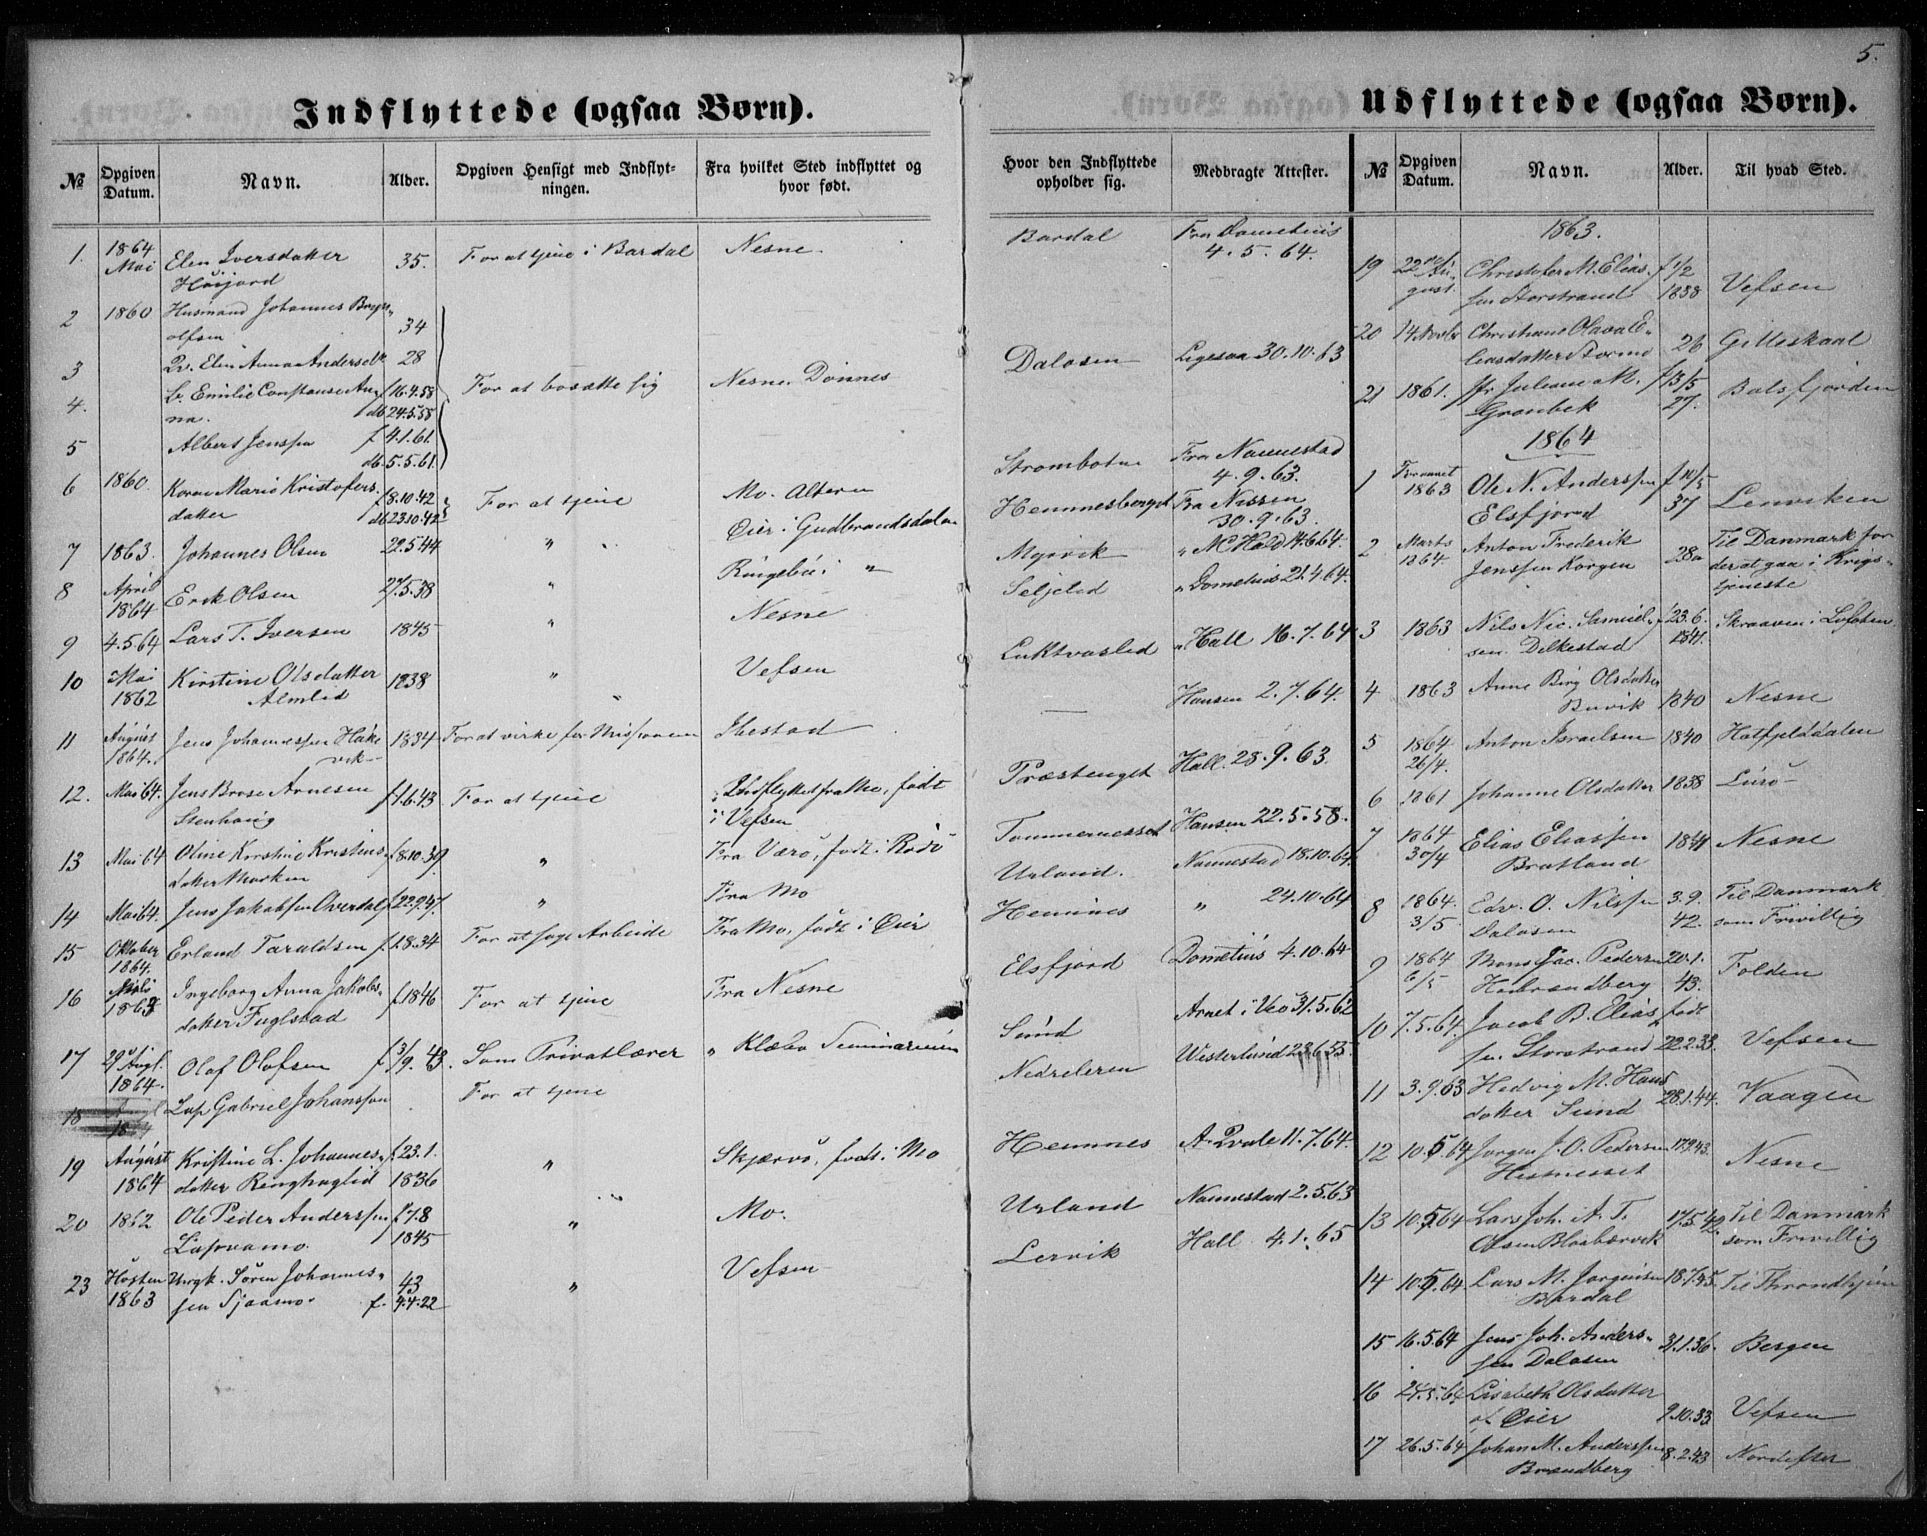 5.
Indflyttede (ogsaa Børn).
№
Opgiven Datum.
Navn.
Alder.
Opgiven Hensigt med Indflyt-
ningen.
Fra hvilket Sted indflyttet og
hvor født.
1. 1864 Mai Elen Iversdatter 35. For at tjene i Bardal Nesne.
Høijord
2 1860 Husmand Johannes
olfsen 34
3 Elen Anna 28
4. Emilie Constanse An- f 16.4.58 For at bosætte sig Nesne. Dønnes
na. db 24.5.58
5 Albert Jensen f 4.1.61
db. 5.5.61.
6 1860. Karen Marie Kristofers- f 8.10.42 For at tjene Mo. Altern
datter db 23.10.42
7 1863. Johannes Olsen 22.5.44 " Øier i Gudbrandsdalen
8 April 1864 Erik Olsen 27.5.38 " Ringebu i "
9 4.5.64 Lars T. Iversen 1845 " Nesne
10 Mai 1862 Kirstine Olsdatter 1838 " Vefsen
Almlid
11 August 1864. Jens Johannesen Hake- 1834 For at virke for Missionen Ibestad
vik
12. Mai 64. Jens Brose Arnesen f 1.6.43 For at tjene Indflyttet fra Mo, født
Stenhaug i Vefsen
13 Mai 64 Oline Kirstine Kristens- f 8.10.39 " Fra Værø, født i Rødø
datter
14 Mai 64. Jens Jakobsen Overdal f 22.9.47. " Fra Mo
15 Oktober 1864. Erland Taraldsen f. 1.8.34 For at søge Arbeide Fra Mo, født i Øier
16 1863 Ingeborg Anna Jakobs- f. 1846 For at tjene Fra Nesne
datter Fuglstad
17 29 Augt. 1864. Olaf Olafsen f 3/9. 43. Som Privatlærer " Klæbo Seminarium
18 Lap Gabriel Johansson For at tjene
19 August 1864 Kristine L. Johannes- f 23.1. " Skjærvø, født i Mo
datter Ringhaglid 1836
20 1862 Ole Peder Anderssen f 7.8 " Mo.
1845
23 Høsten 1863 Ungk. Søren Johannes- 43 " Vefsen
sen Sjaamo. f. 4.4.22
Udflyttede (ogsaa Børn).
Hvor den Indflyttede
opholder sig.
Medbragte Attester.
№
Opgiven Datum.
Navn.
Alder.
Til hvad Sted.
Bardal Fra Dometius
4.5.64.
Dalosen Ligesaa 30.10.63
Strombotn Fra Nannestad
4.9.63.
Hemnesberget Fra Nissen
30.9.63.
Myrvik
Seljelid " Dometius 21.4.64.
Luktvaslid " Hall 16.7.64
Hansen 2.7.64.
Præstenget Hall. 28.9.63.
Tommernesset Hansen 22.5.58.
Urland. Nannestad 18.10.64.
Hemnes " 24.10.64
Elsfjord Dometius 4.10.64
Sund 31.5.62
Nedreleren Westerlund
Hemnes A. Qvale 11.7.64.
Urland Nannestad 2.5.63
Lervik Hall 4.1.65
1863.
19 22 August. Christofer M. Elias- f 1/2 Vefsen
sen Storstrand 1838
20 14 Novbr Christiane Olava E-
liasdatter 26 Gilleskaal
21 1861. Juliane M. f 13/5 Balsfjorden
Grønbek 27.
1864
1 1863 Ole N. Anderssen f 10/5 Lenviken
Elsfjord 37
2 Marts 1864. Anton Frederik 28 Til Danmark for
Jenssen Korgen der at gaa i Krigs-
tjeneste
3 1863 Nils Nic. Samuel- f 23.6. Skraaven i Lofoten
sen Dilkestad 1841.
4 1863 Anne Birg Olsdatter
Buvik 1840 Nesne
5 1864 26/4. Anton Israelsen 1840 Hatfjelddalen
6 1861 Johanne Olsdatter 1838 Lurø
7 1864 30/4 Elias Eliassen 1841 Nesne
Bratland
8 1864. 3/5 Edv. O. Nilssen 3.9. Til Danmark
Dalosen 42. som Frivillig
9 1864 6/5 Mons Jac. Pedersen 20.1. Folden
43.
10 7.5.64. Jacob B. Elias- født
sen Storstrand 22.2.33. Vefsen
11 3.9.63 Hedvig M. Hans-
datter Sund 28.1.44. Vaagen
12 10.5.64 Jørgen J. O. Pedersen 17.9.43. Nesne
Hestnesset
13 10.5.64 Lars Joh. A. T. 17.5.42. Til Danmark
Olsen Blaabærvik som Frivillig
14 10.5.64. Lars M. Jørgensen 18.7.45. Til Throndhjem
Bardal
15 16.5.64 Jens Joh. Anders- 31.1.36. Bergen
sen Dalosen
16 24.5.64 Lisabeth Olsdatter
af Øier 9.10.33. Vefsen
17 26.5.64 Johan M. Anderssen 8.2.43
Brændberg